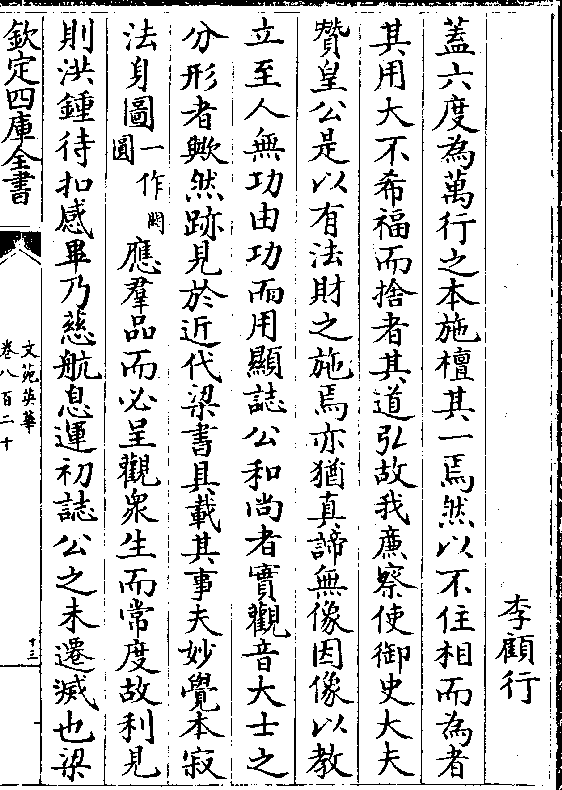 李顧行
蓋六度為萬行之本施檀其一焉然以不住相而為者
其用大不希福而捨者其道弘故我㢘察使御史大夫
贊皇公是以有法財之施焉亦猶真諦無像因像以教
立至人無功由功而用顯誌公和尚者實觀音大士之
分形者歟然跡見於近代梁書具載其事夫妙覺本寂
法身圖一作閟圓應羣品而必呈觀衆生而常度故利見
則洪鍾待扣感畢乃慈航息運初誌公之未遷滅也梁
欽定四庫全書
文苑英華
卷八百二十
十三